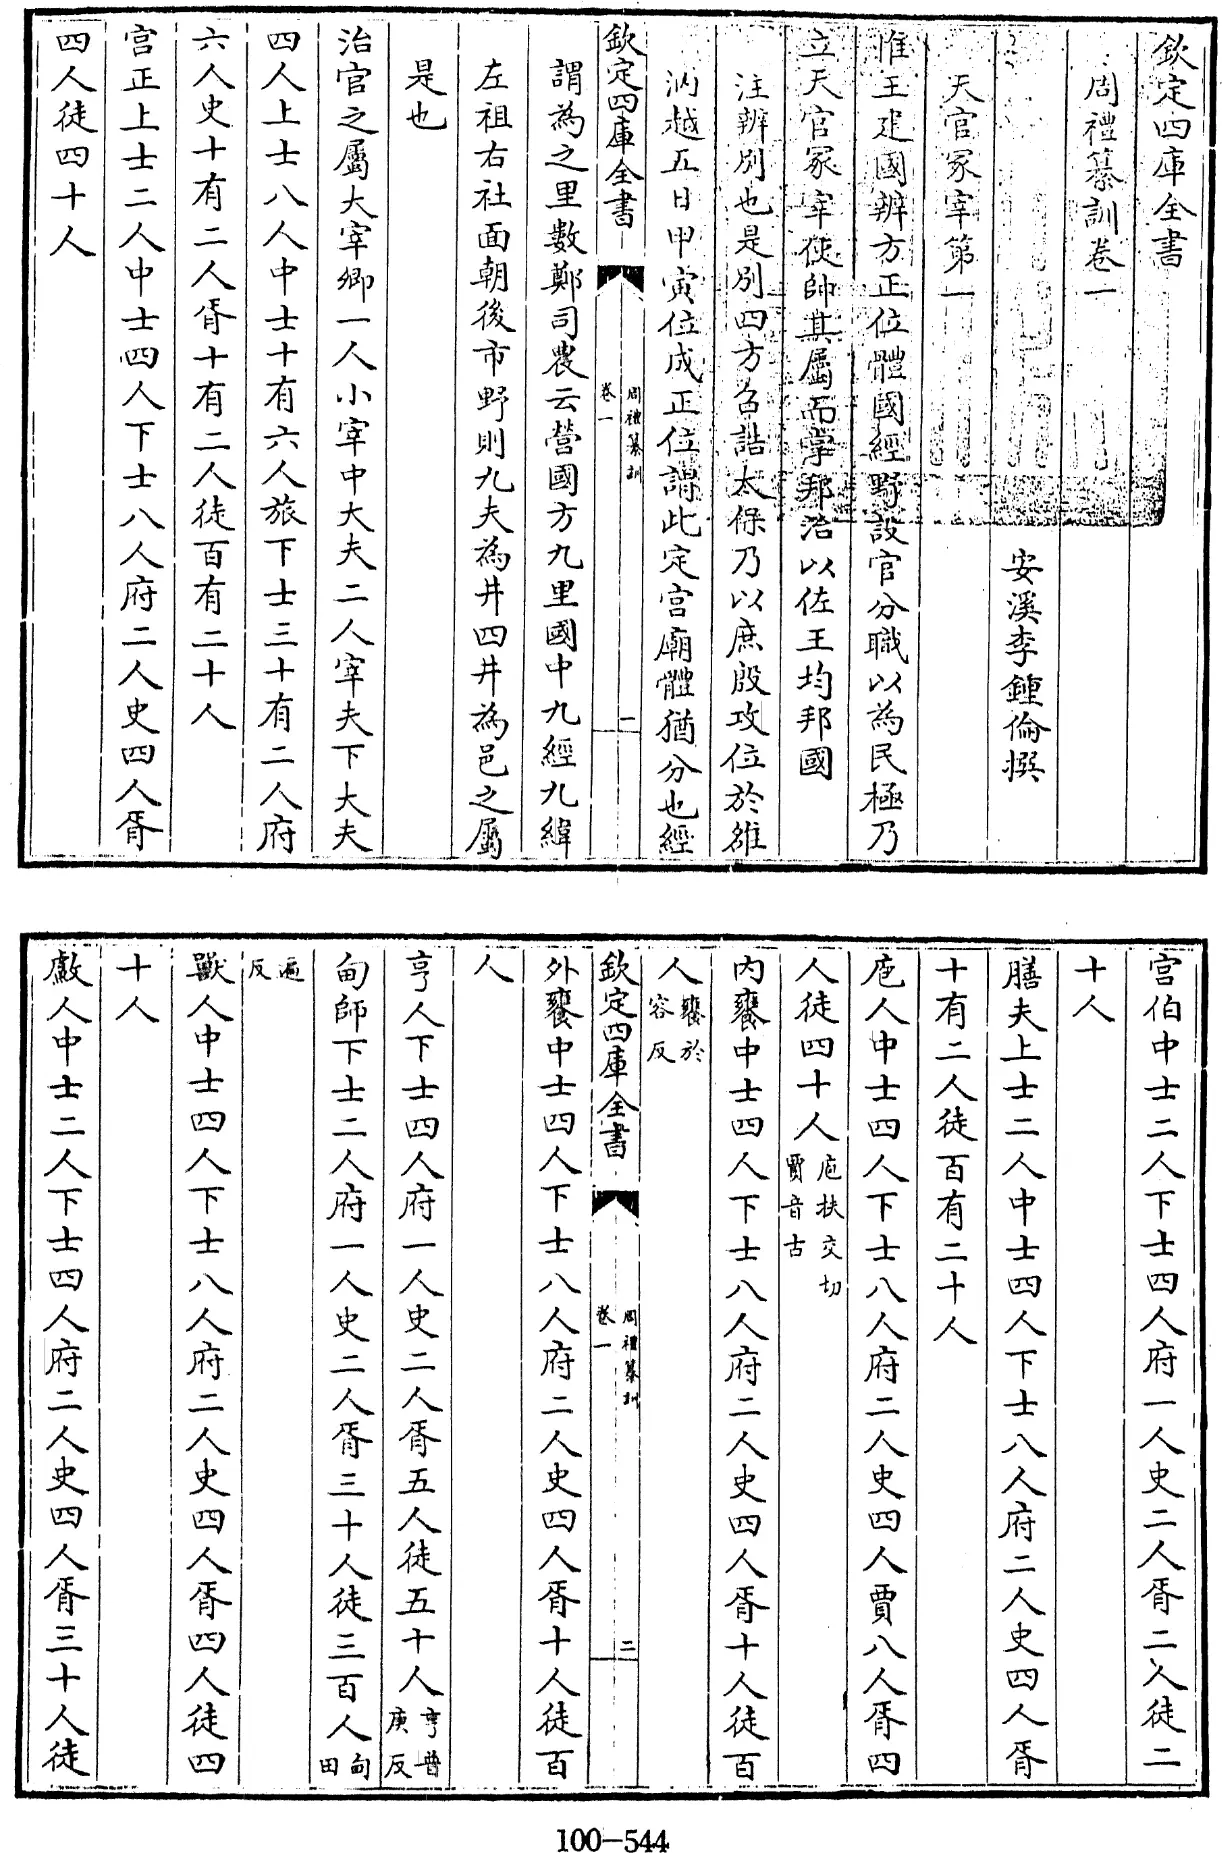 欽定四庫全書
周禮纂訓卷一
安溪李鍾倫撰
天官冢宰第一
惟王建國辨方正位體國經野設官分職以為民極乃
立天官冢宰使帥其屬而掌邦治以佐王均邦國
注辨别也是别四方召誥太保乃以庶殷攻位於雒
汭越五日甲寅位成正位謂此定宫廟體猶分也經
欽定四庫全書
周禮纂訓
卷一
一
謂為之里數鄭司農云營國方九里國中九經九緯
左祖右社面朝後市野則九夫為井四井為邑之屬
是也
治官之屬大宰卿一人小宰中大夫二人宰夫下大夫
四人上士八人中士十有六人旅下士三十有二人府
六人史十有二人胥十有二人徒百有二十人
宫正上士二人中士四人下士八人府二人史四人胥
四人徒四十人
宫伯中士二人下士四人府一人史二人胥二人徒二
十人
膳夫上士二人中士四人下士八人府二人史四人胥
十有二人徒百有二十人
庖人中士四人下士八人府二人史四人賈八人胥四
人徒四十人庖扶交切賈音古
内饔中士四人下士八人府二人史四人胥十人徒百
人饔於容反
欽定四庫全書
周禮纂訓
卷一
二
外饔中士四人下士八人府二人史四人胥十人徒百
人
亨人下士四人府一人史二人胥五人徒五十人亨普庚反
甸師下士二人府一人史二人胥三十人徒三百人甸田
遍反
獸人中士四人下士八人府二人史四人胥四人徒四
十人
䱷人中士二人下士四人府二人史四人胥三十人徒
100-544